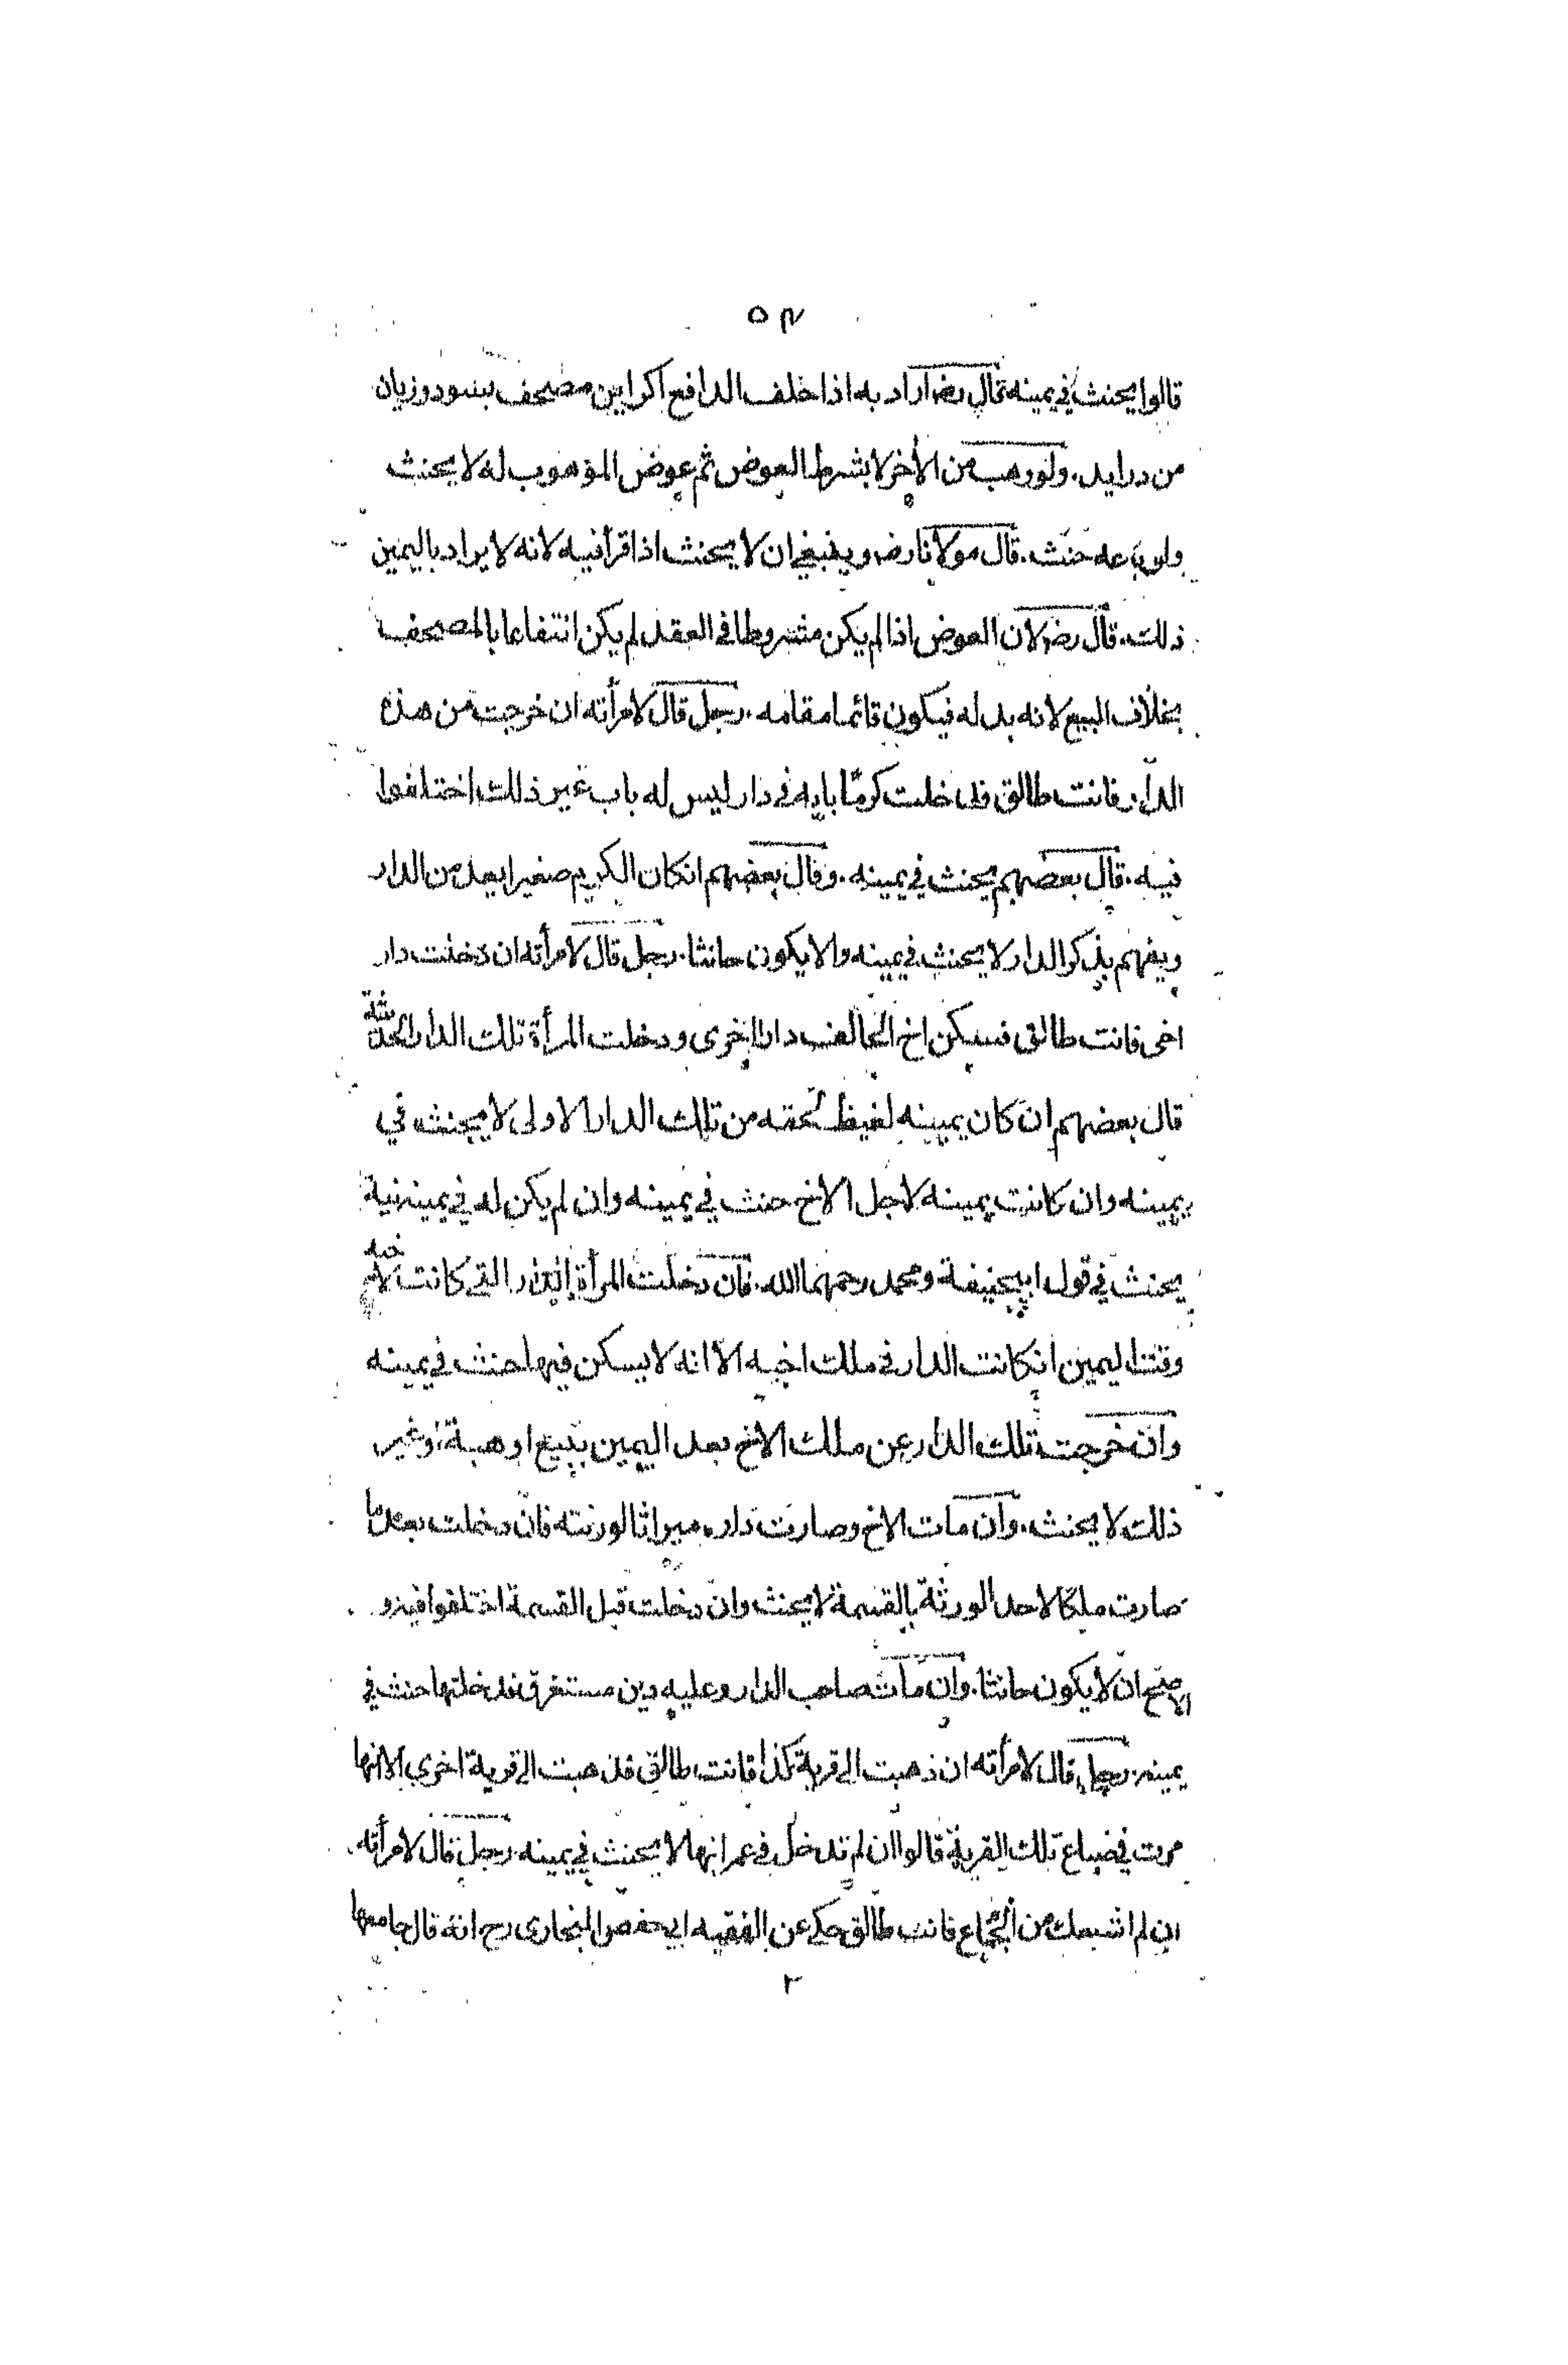 ٥٢
قالوا يحنث في يمينه قال رضـ اراد به اذا حلف الدافع اكر اين مصحف بسود وزيان
من درايد . ولو وهب من الآخر لا بشرط العوض ثم عوض الموهوب له لا يحنث
ولو باعه حنث . قال مولانا رضـ وينبغي ان لا يحنث اذا قرأ فيه لانه لا يراد باليمين
ذلك . قال رضـ لان العوض اذا لم يكن مشروطا في العقد لم يكن انتفاعا بالمصحف
بخلاف البيع لانه بدله فيكون قائما مقامه . رجل قال لامرأته ان خرجت من هذه
الدار فانت طالق فدخلت كرمًا بابه في دار ليس له باب غير ذلك اختلفوا
فيه . قال بعضهم يحنث في يمينه . وقال بعضهم انكان الكرم صغيرا يعد من الدار
ويفهم بذكر الدار لا يحنث في يمينه والا يكون حانثا . رجل قال لامرأته ان دخلت دار
اخى فانت طالق فسكن اخ الحالف دارا اخرى ودخلت المرأة تلك الدار الحديثة
قال بعضهم ان كان يمينه لغيظ لحقه من تلك الدار الاولى لا يحنث في
يمينه وان كانت يمينه لاجل الاخ حنث في يمينه وان لم يكن له في يمينه نية
يحنث في قول ابيحنيفة ومحمد رحمهما الله . فان دخلت المرأة الدار التي كانت لاخيه
وقت اليمين انكانت الدار في ملك اخيه الا انه لا يسكن فيها حنث في يمينه
وان خرجت تلك الدار عن ملك الاخ بعد اليمين ببيع او هبة او غير
ذلك لا يحنث . وان مات الاخ وصارت داره ميراثا لورثته فان دخلت بعد ما
صارت ملكا لاحد الورثة بالقسمة لا يحنث وان دخلت قبل القسمة اختلفوا فيه و
الاصح ان لا يكون حانثا . وان مات صاحب الدار وعليه دين مستغرق فدخلتها حنث في
يمينه . رجل قال لامرأته ان ذهبت الى قرية كذا فانت طالق فذهبت الى قرية اخرى الا انها
مرت في ضياع تلك القرية قالوا ان لم تدخل في عمرانها لا يحنث في يمينه . رجل قال لامرأته
ان لم اشبعك من الجماع فانت طالق حكي عن الفقيه ابي حفص البخارى رح انه قال جامعها
٢